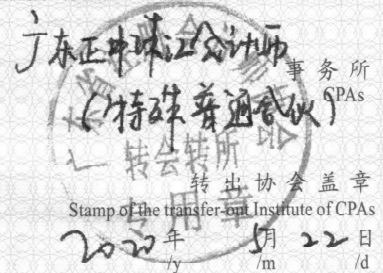 广东正中珠江会计师
事务所
CPAs
(特殊普通合伙)
转会转所
转出协会盖章
专用章
Stamp of the transfer-out Institute of CPAs
2020年 5月 22日
/y /m /d